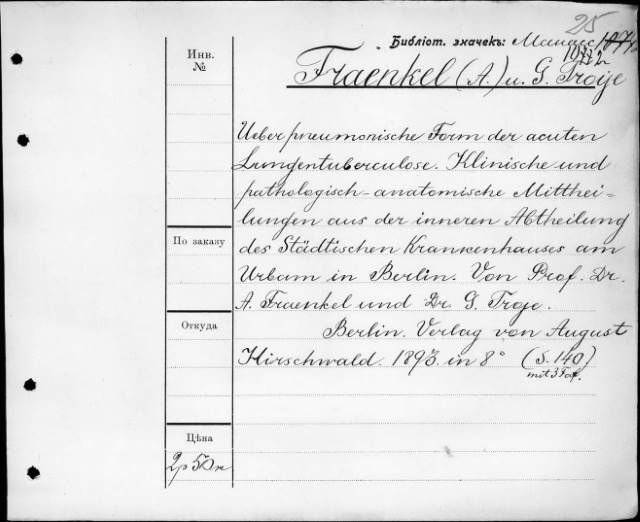 25
Библіот. значекъ: Манасс
Инв.
№
Fraenkel (A.) u. G. Troje
Ueber pneumonische Form der acuten
Lungentuberculose. Klinische und
pathologisch-anatomische Mitthei=
lungen aus der inneren Abtheilung
По заказу
des Städtischen Krankenhauses am
Urbam in Berlin. Von Prof. Dr.
A. Fraenkel und Dr. G. Troje.
Откуда
Berlin. Verlag von August
Hirschwald. 1893. in 8° (S. 140)
mit 3 Taf.
Цѣна
2р 50к